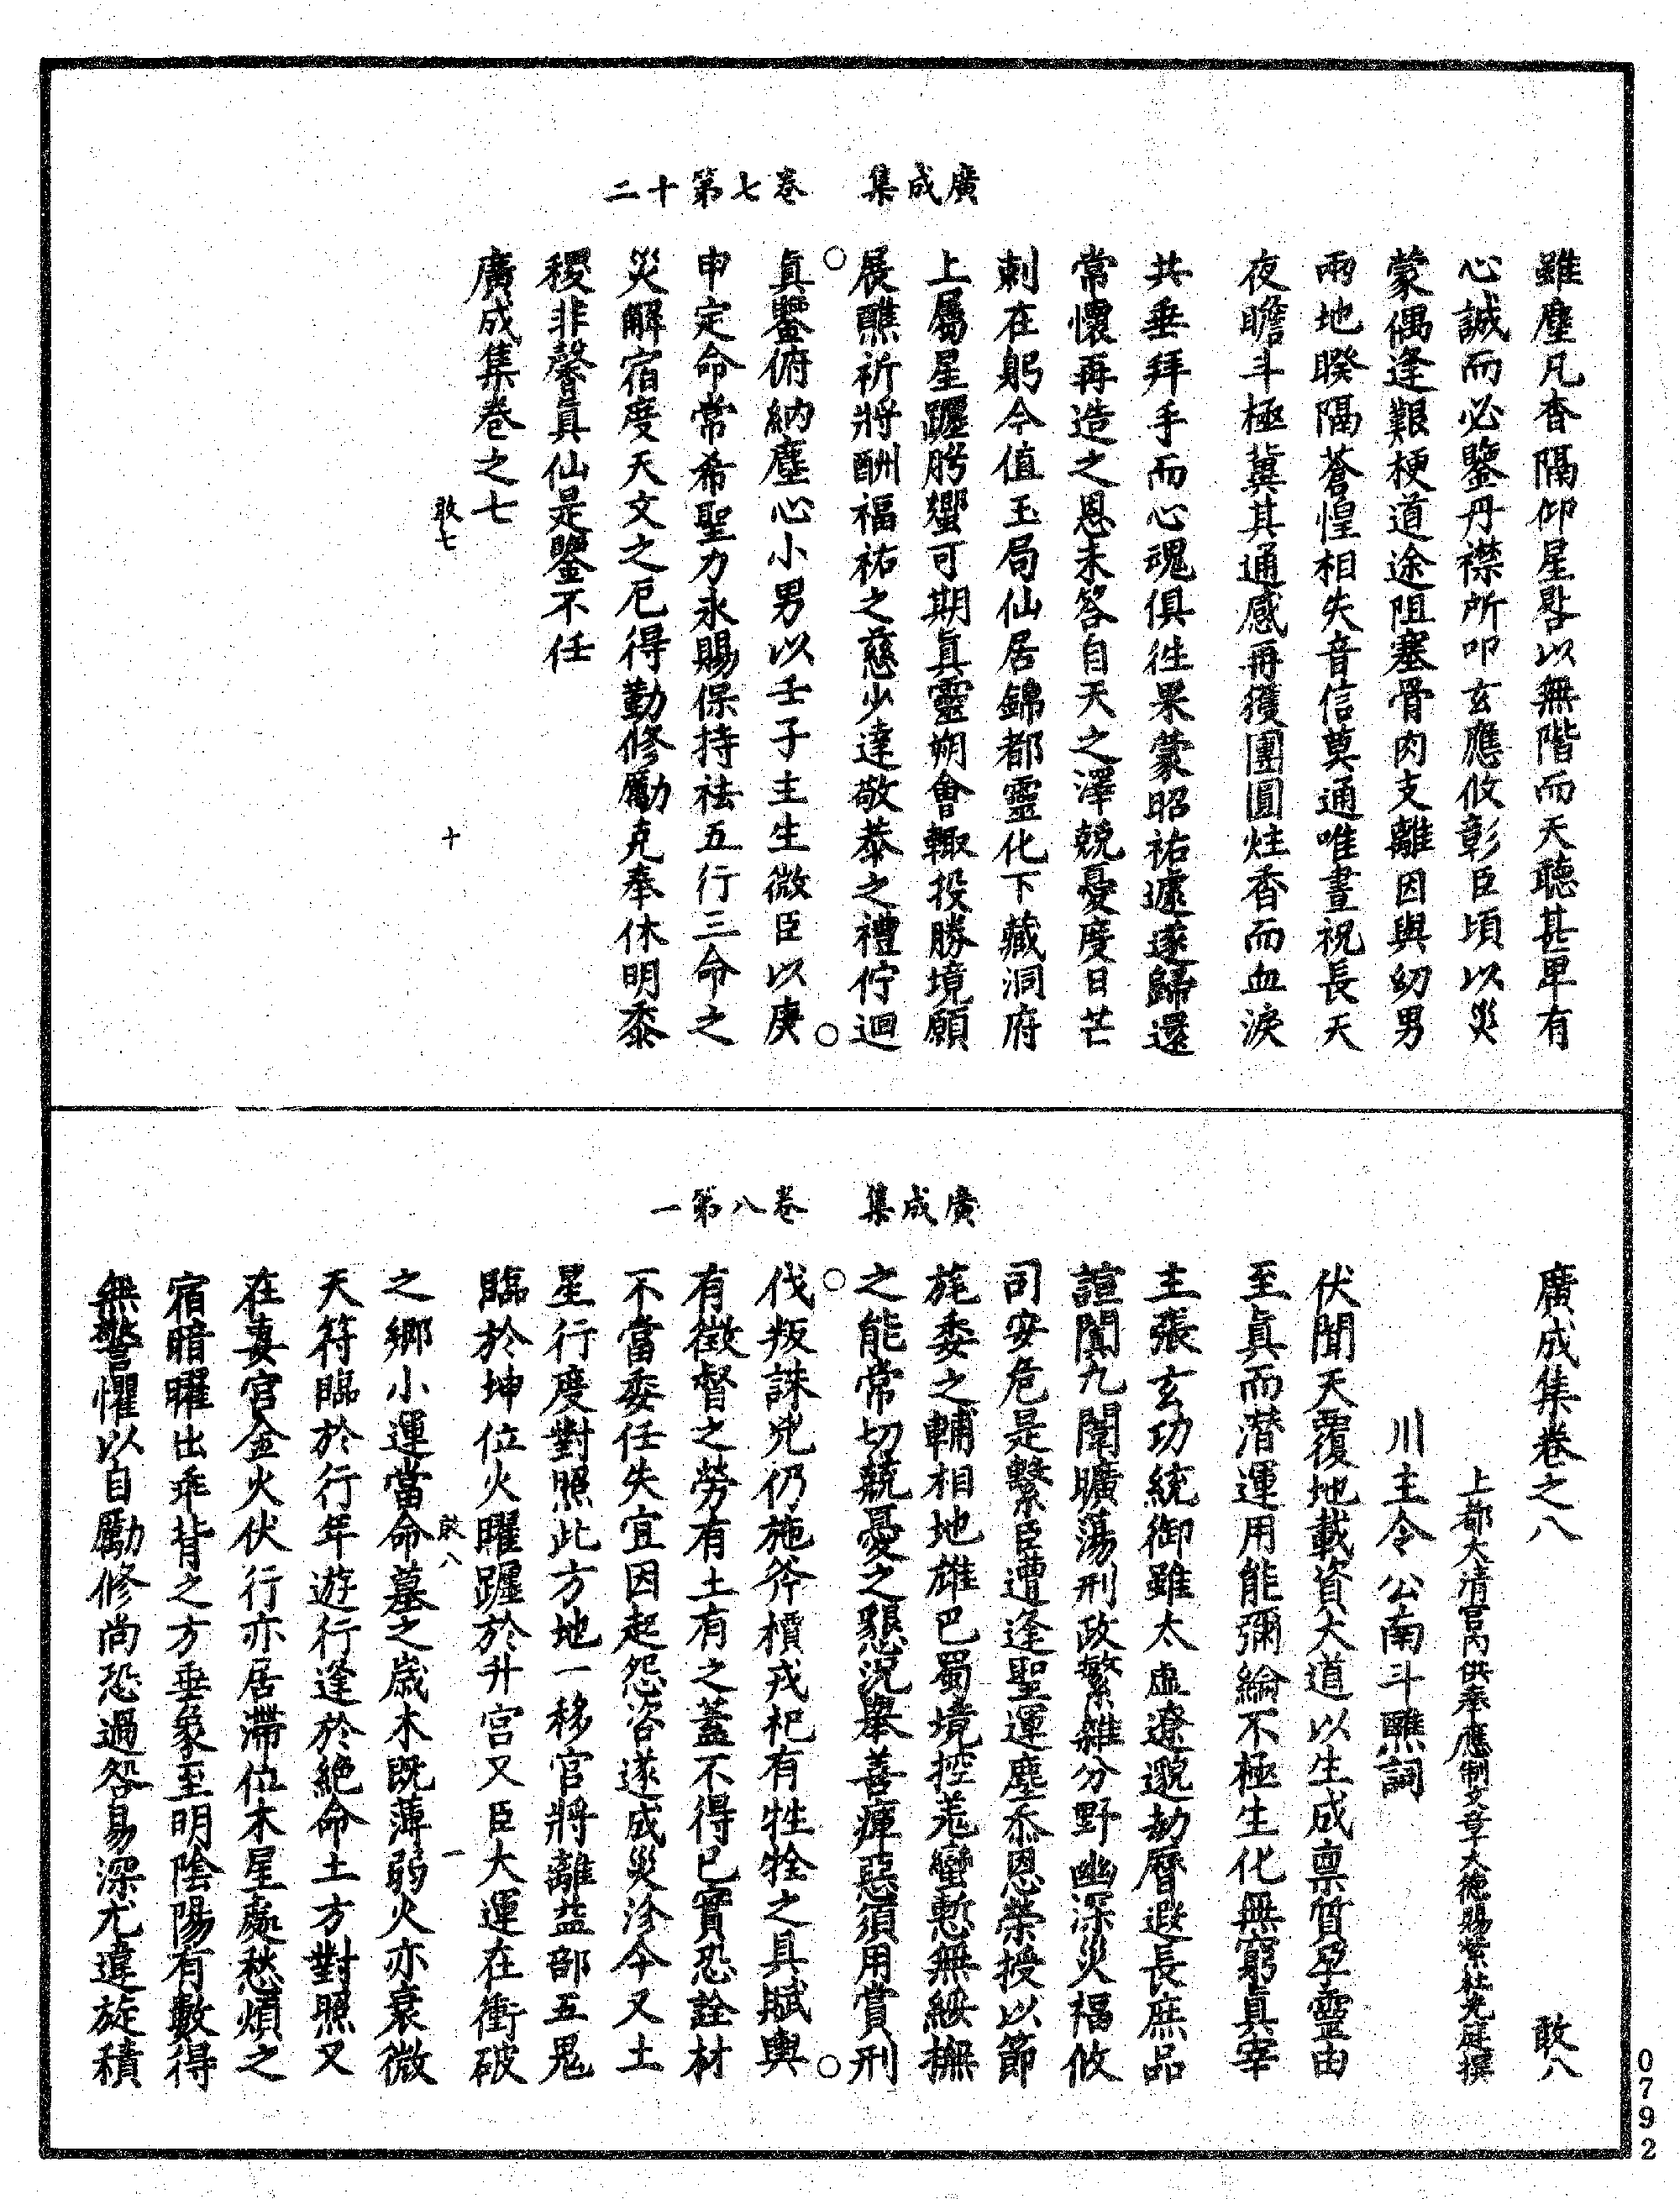 廣成集　卷七第十二
雖塵凡杳隔仰星晷以無階而天聽甚卑有
心誠而必鑒丹襟所叩玄應攸彰臣頃以災
蒙偶逢艱梗道途阻塞骨肉支離因與幼男
兩地睽隔蒼惶相失音信莫通唯晝祝長天
夜瞻斗極冀其通感再獲團圓炷香而血淚
共垂拜手而心魂俱往果蒙昭祐遽遂歸還
常懷再造之恩未答自天之澤兢憂度日芒
刺在躬今值玉局仙居錦都靈化下藏洞府
上屬星躔肹蠁可期真靈朔會輙投勝境願
展醮祈將酬福祐之慈少達敬恭之禮佇迴
真鑒俯納塵心小男以壬子主生微臣以庚
申定命常希聖力永賜保持祛五行三命之
災解宿度天文之厄得勤修勵克奉休明黍
稷非馨真仙是鑒不任
廣成集卷之七
敢七
十
廣成集　卷八第一
廣成集卷之八　敢八
上都太清宮內供奉應制文章大德賜紫杜光庭撰
川主令公南斗醮詞
伏聞天覆地載資大道以生成稟質孕靈由
至真而潛運用能彌綸不極生化無窮真宰
主張玄功統御雖太虛遼邈劫曆遐長庶品
諠闐九闈曠蕩刑政繁雜分野幽深災福攸
司安危是繫臣遭逢聖運塵忝恩榮授以節
旄委之輔相地雄巴蜀境控羌蠻慙無綏撫
之能常切兢憂之懇況舉善癉惡須用賞刑
伐叛誅兇仍施斧櫝戎祀有牲牷之具賦輿
有徵督之勞有土有之蓋不得已實恐詮材
不當委任失宜因起怨咨遂成災沴今又土
星行度對照此方地一移宮將離益部五鬼
臨於坤位火曜躔於升宮又臣大運在衝破
之鄉小運當命墓之歲木既薄弱火亦衰微
天符臨於行年遊行逢於絕命土方對照又
在妻宮金火伏行亦居滯位木星處愁煩之
宿暗曜出乖背之方垂象至明陰陽有數得
無警懼以自勵修尚恐過咎易深尤違旋積
敢八
一
0792